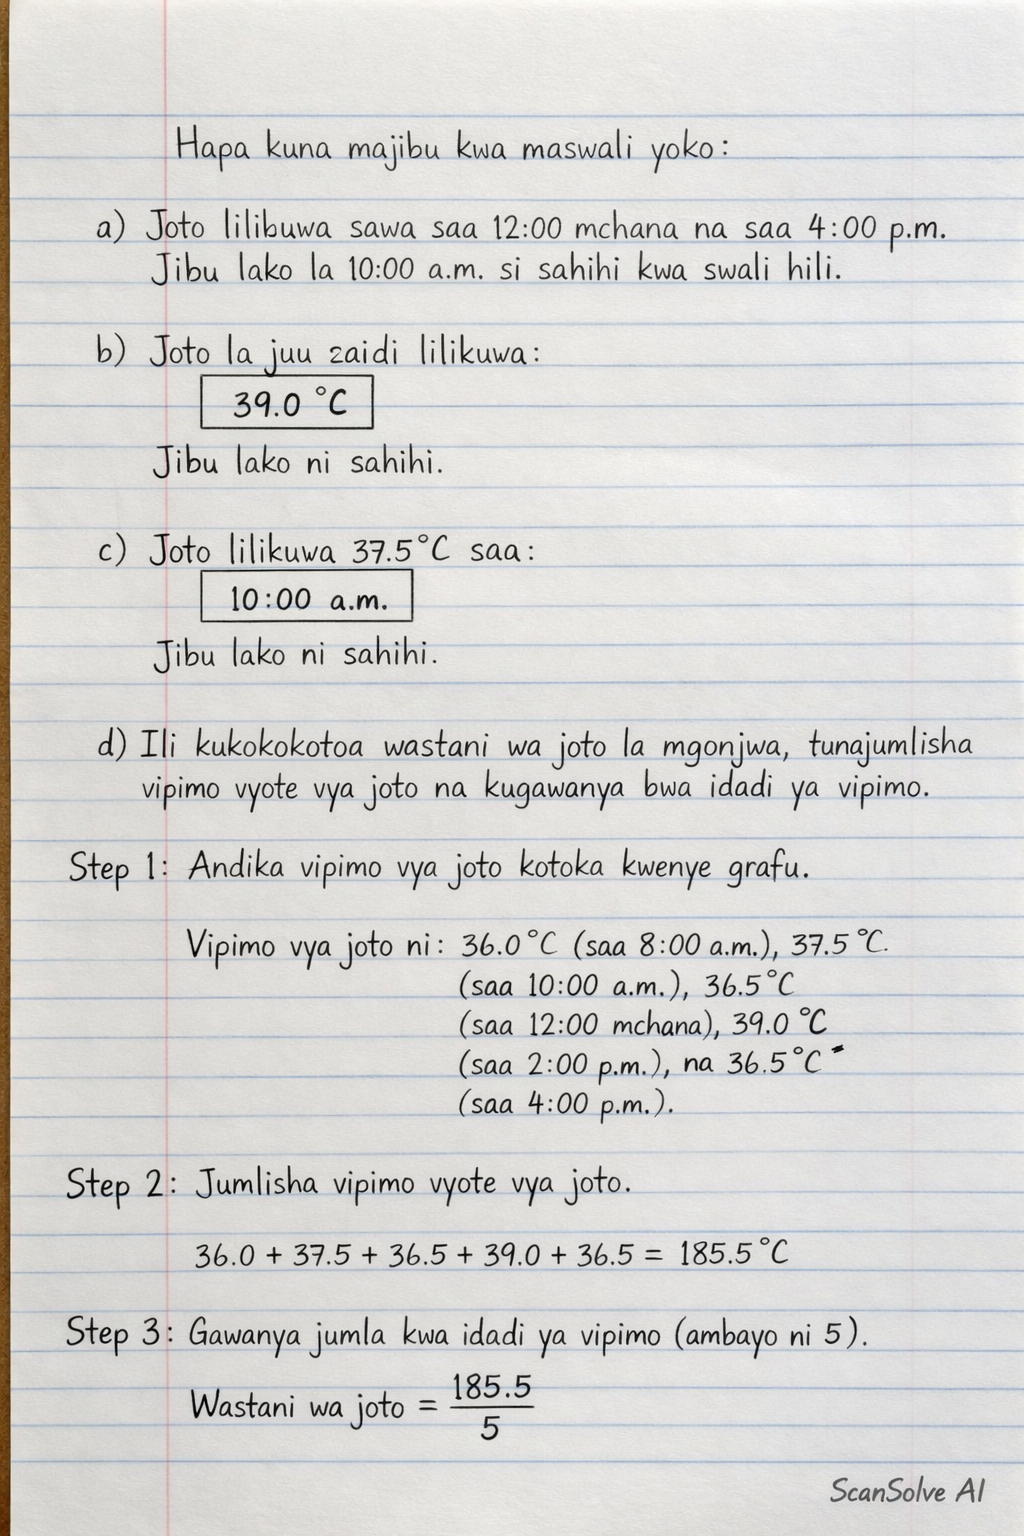 Hapa kuna majibu kwa maswali yoko:
a) Joto lilibuwa sawa saa 12:00 mchana na saa 4:00 p.m.
Jibu lako la 10:00 a.m. si sahihi kwa swali hili.
b) Joto la juu zaidi lilikuwa:
39.0 °C
Jibu lako ni sahihi.
c) Joto lilikuwa 37.5°C saa:
10:00 a.m.
Jibu lako ni sahihi.
d) Ili kukokokotoa wastani wa joto la mgonjwa, tunajumlisha
vipimo vyote vya joto na kugawanya bwa idadi ya vipimo.
Step 1: Andika vipimo vya joto kotoka kwenye grafu.
Vipimo vya joto ni: 36.0°C (saa 8:00 a.m.), 37.5°C.
(saa 10:00 a.m.), 36.5°C
(saa 12:00 mchana), 39.0 °C
(saa 2:00 p.m.), na 36.5°C
(saa 4:00 p.m.).
Step 2: Jumlisha vipimo vyote vya joto.
36.0 + 37.5 + 36.5 + 39.0 + 36.5 = 185.5°C
Step 3: Gawanya jumla kwa idadi ya vipimo (ambayo ni 5).
Wastani wa joto = 185.5
5
ScanSolve AI